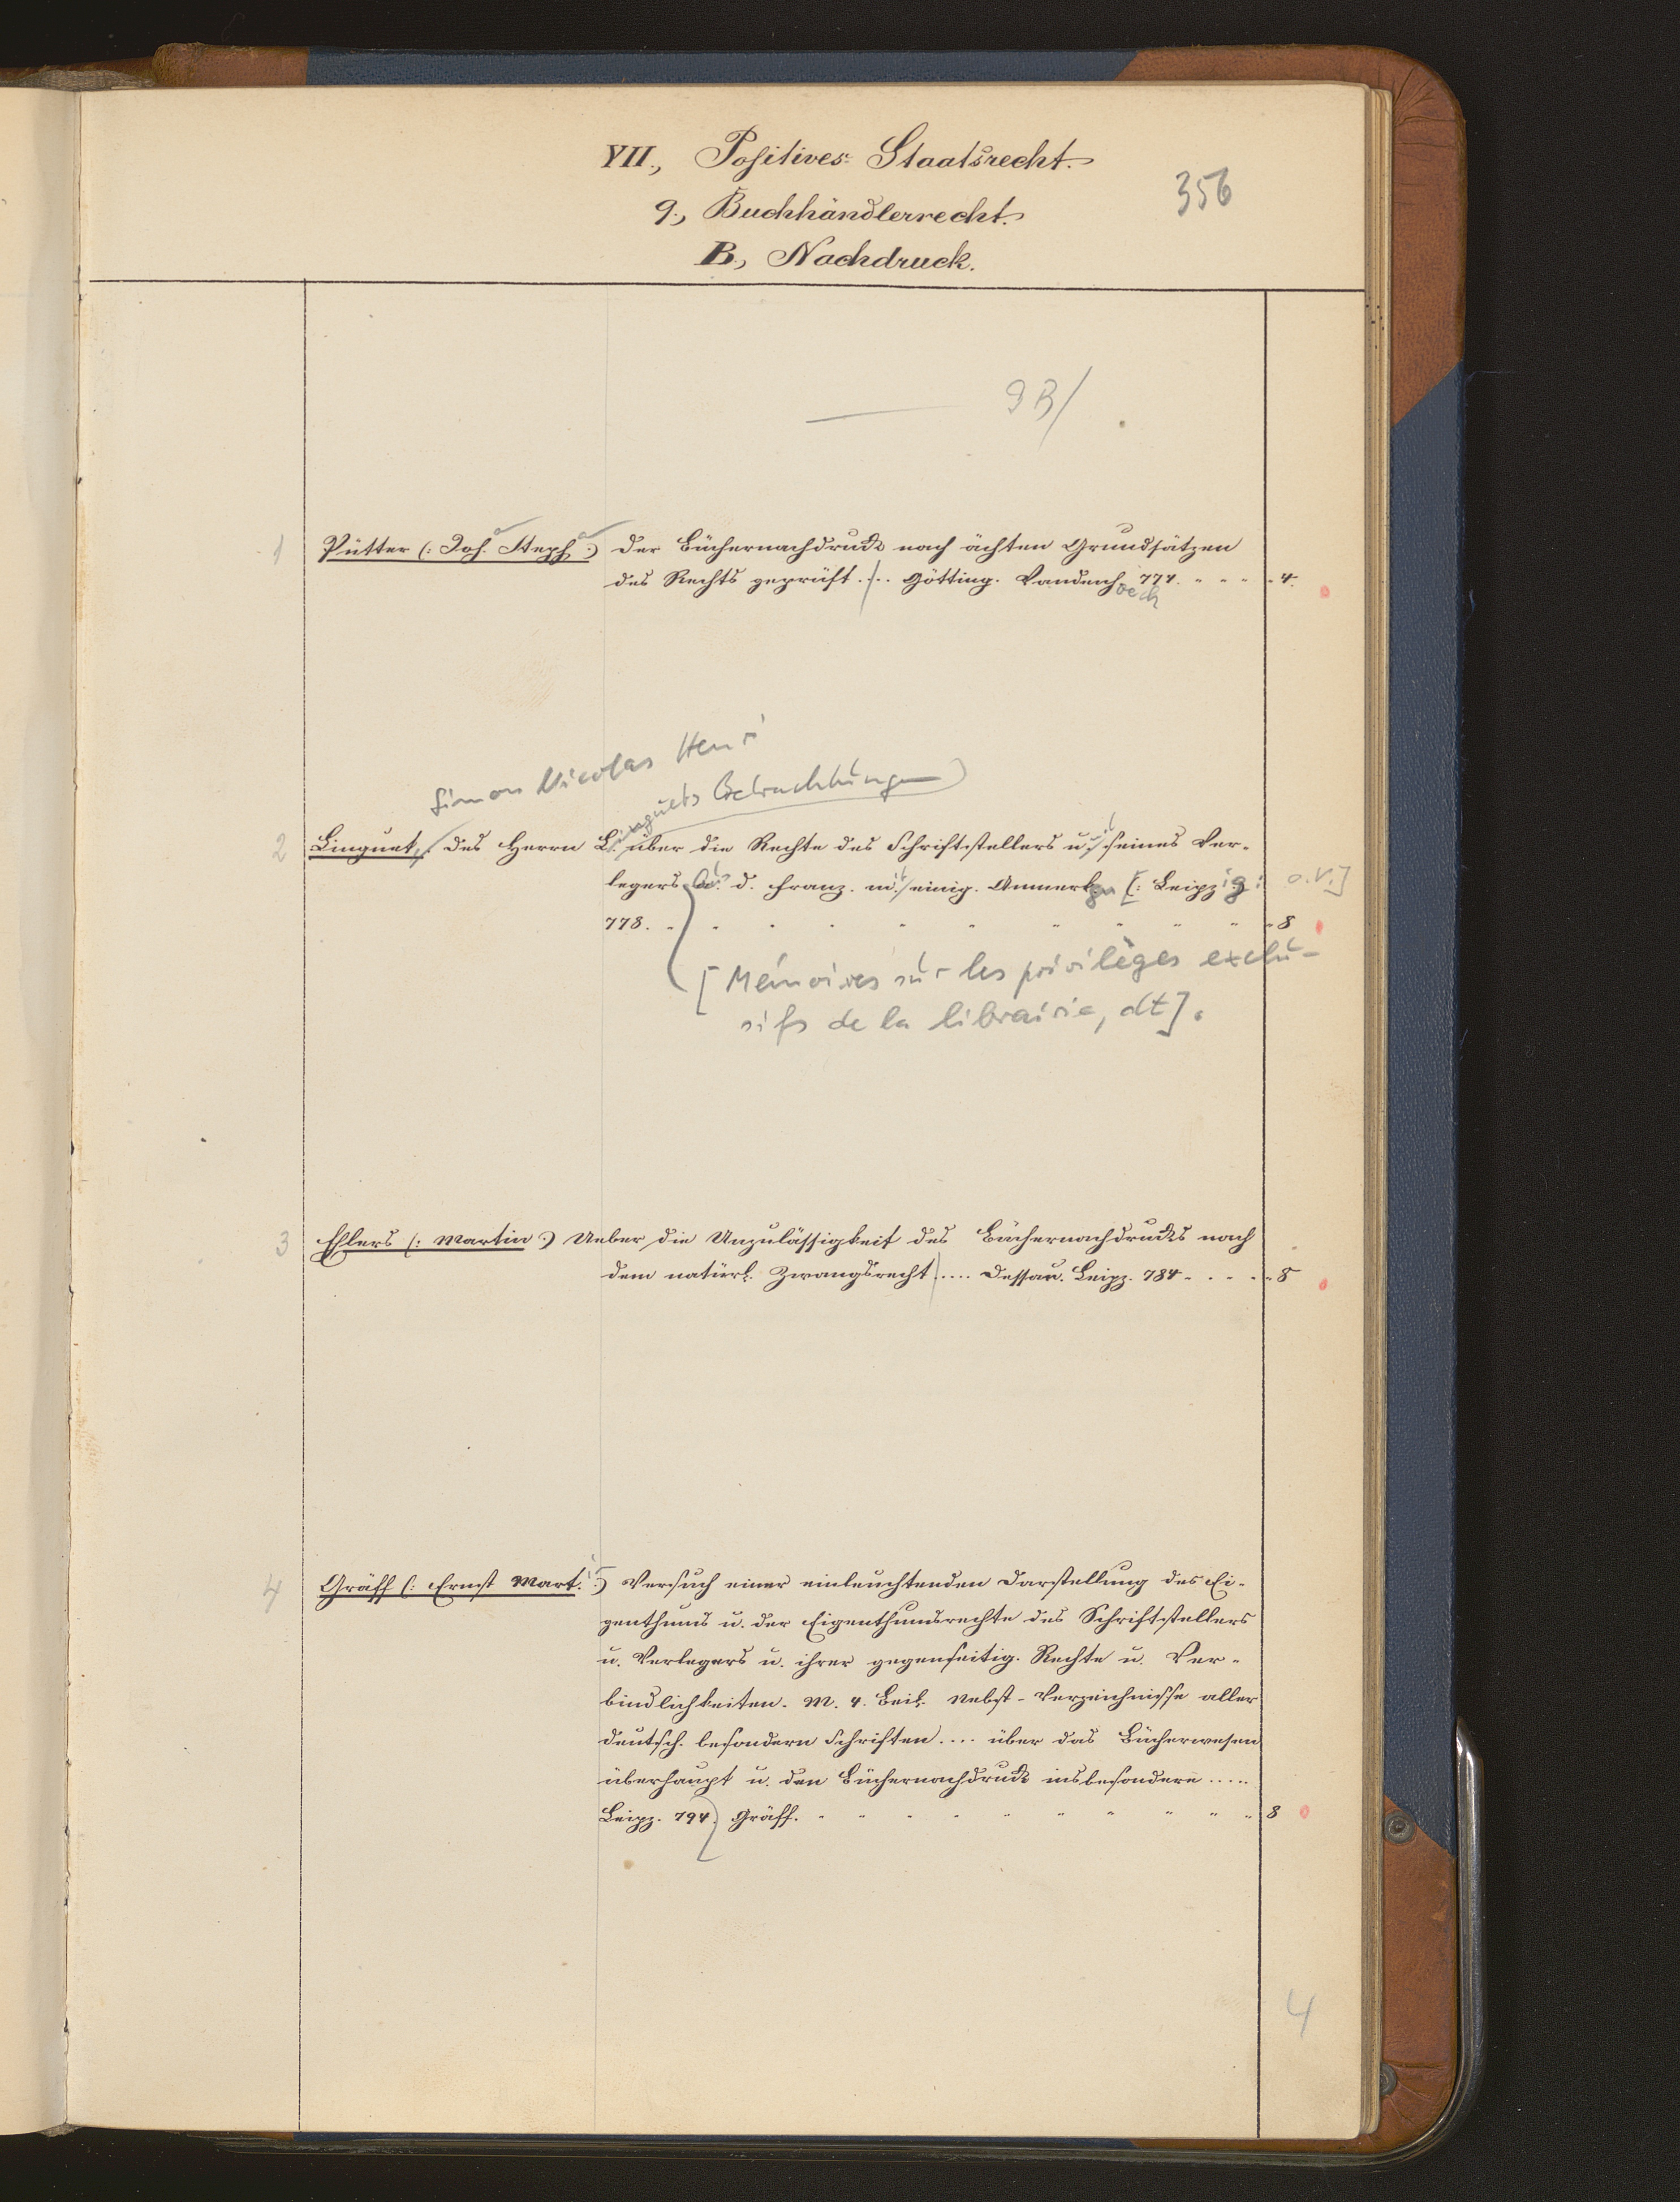 VII., Positives Staatsrecht.
356
9., Buchhändlerrecht.
B., Nachdruck.
9B/
1 Pütter (: Joh. Steph :) Der Büchernachdruck nach ächten Grundsätzen
des Rechts geprüft ... Götting. Vandenh 774. 4.
oech
Simon Nicolas Henri
inguets Betrachtungen
2 Linguet, Des Herrn L. über die Rechte des Schriftstellers u. seines Ver-
legers A. d. Franz. m. einig. Anmerkgn [: Leipzig: o. V.]
778. 8
[Mémoires sur les privilèges exclu-
sifs de la librairie, dt].
3 Ehlers (: Martin :) Ueber die Unzulässigkeit des Büchernachdrucks nach
dem natürl. Zwangsrecht .... Dessau. Leipz. 784 8
4 Gräff (: Ernst Mart. :) Versuch einer einleuchtenden Darstellung des Ei-
genthums u. der Eigenthumsrechte des Schriftstellers
u. Verlegers u. ihrer gegenseitig. Rechte u. Ver-
bindlichkeiten. M. 4. Beil. Nebst Verzeichnisse aller
deutsch. besondern Schriften .... über das Bücherwesen
überhaupt u. den Büchernachdruck insbesondere .....
Leipz. 794. Gräff. 8
4